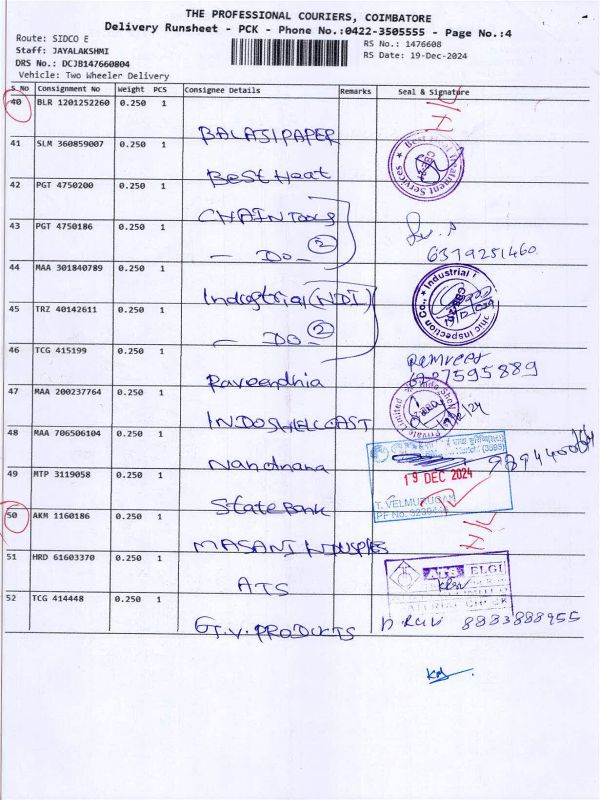 THE PROFESSIONAL COURIERS, COIMBATORE
Delivery Runsheet - PCK - Phone No.:0422-3505555 - Page No.:4
Route: SIDCO E
RS No.: 1476608
Staff: JAYALAKSHMI
RS Date: 19-Dec-2024
DRS No.: DCJB147660804
Vehicle: Two Wheeler Delivery
S No Consignment No Weight PCS Consignee Details Remarks Seal & Signature
40 BLR 1201252260 0.250 1 BALAJI PAPER H/C
41 SLM 360859007 0.250 1 Best Heat
Best Heat Treatment Services
42 PGT 4750200 0.250 1 CHAIN Tools
43 PGT 4750186 0.250 1 - DO - 2
6379251460
44 MAA 301840789 0.250 1 Industrial (NDI)
Industrial
Inspection Co.,
45 TRZ 40142611 0.250 1 - DO - 2
46 TCG 415199 0.250 1 Raveendhia
47 MAA 200237764 0.250 1 INDOSHELCAST
Indo Shell
Private Limited
48 MAA 706506104 0.250 1 Nandhana
49 MTP 3119058 0.250 1 State Bank
19 DEC 2024
T. VELMURUGAN
PF No.
50 AKM 1160186 0.250 1 MASANI INDUSTRIES H/C
51 HRD 61603370 0.250 1 ATS
ELGI
52 TCG 414448 0.250 1 G.T.V. PRODUCTS 8883888955